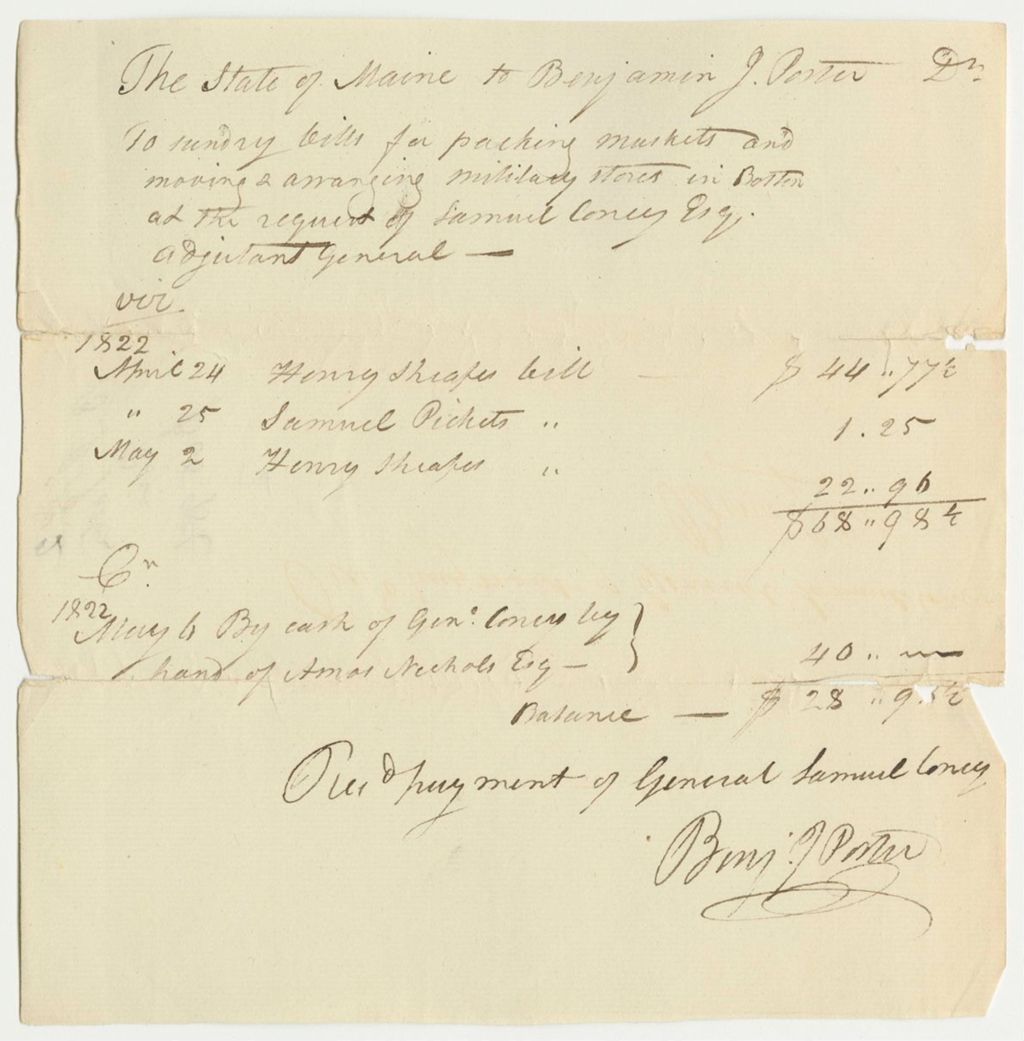 The State of Maine to Benjamin J. Porter Dr.
To sundry bills for packing muskets and
moving & arranging military stores in Boston
at the request of Samuel Coney Esq.
Adjutant General —
viz.
1822
April 24 Henry Sheafes bill — $ 44 " 77½
" 25 Samuel Pickets " 1.25
May 2 Henry Sheafes " 22 " 96
$ 68 " 98½
Cr.
1822
May 6 By cash of Genl. Coney by
hand of Amos Nichols Esq — 40 " —
Balance — $ 28 " 98½
Recd payment of General Samuel Coney
Benj. J Porter